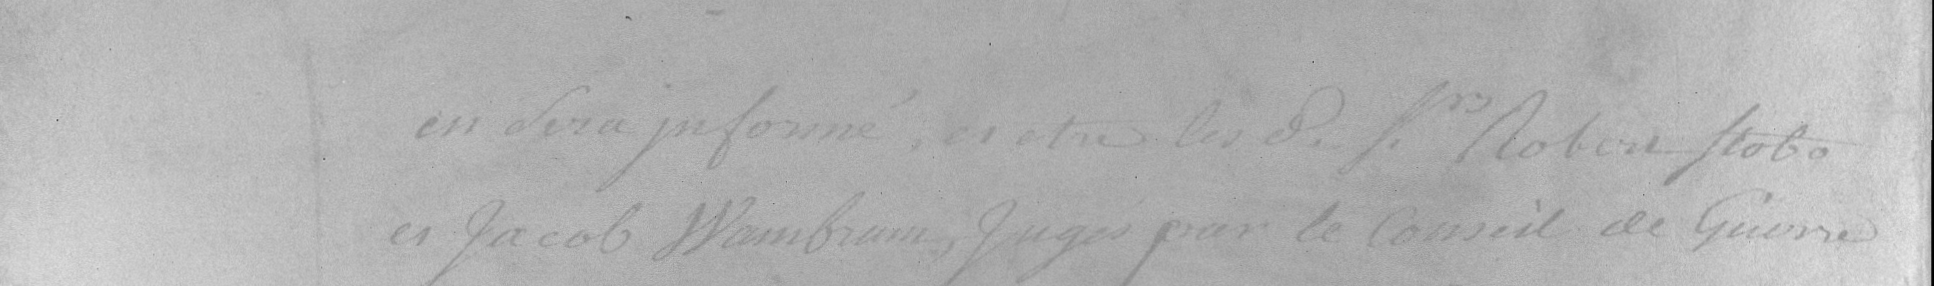 en sera jnformé, et etre les d. Srs Robert Stobo
et Jacob Wambram, Jugés par le Conseil de Guerre